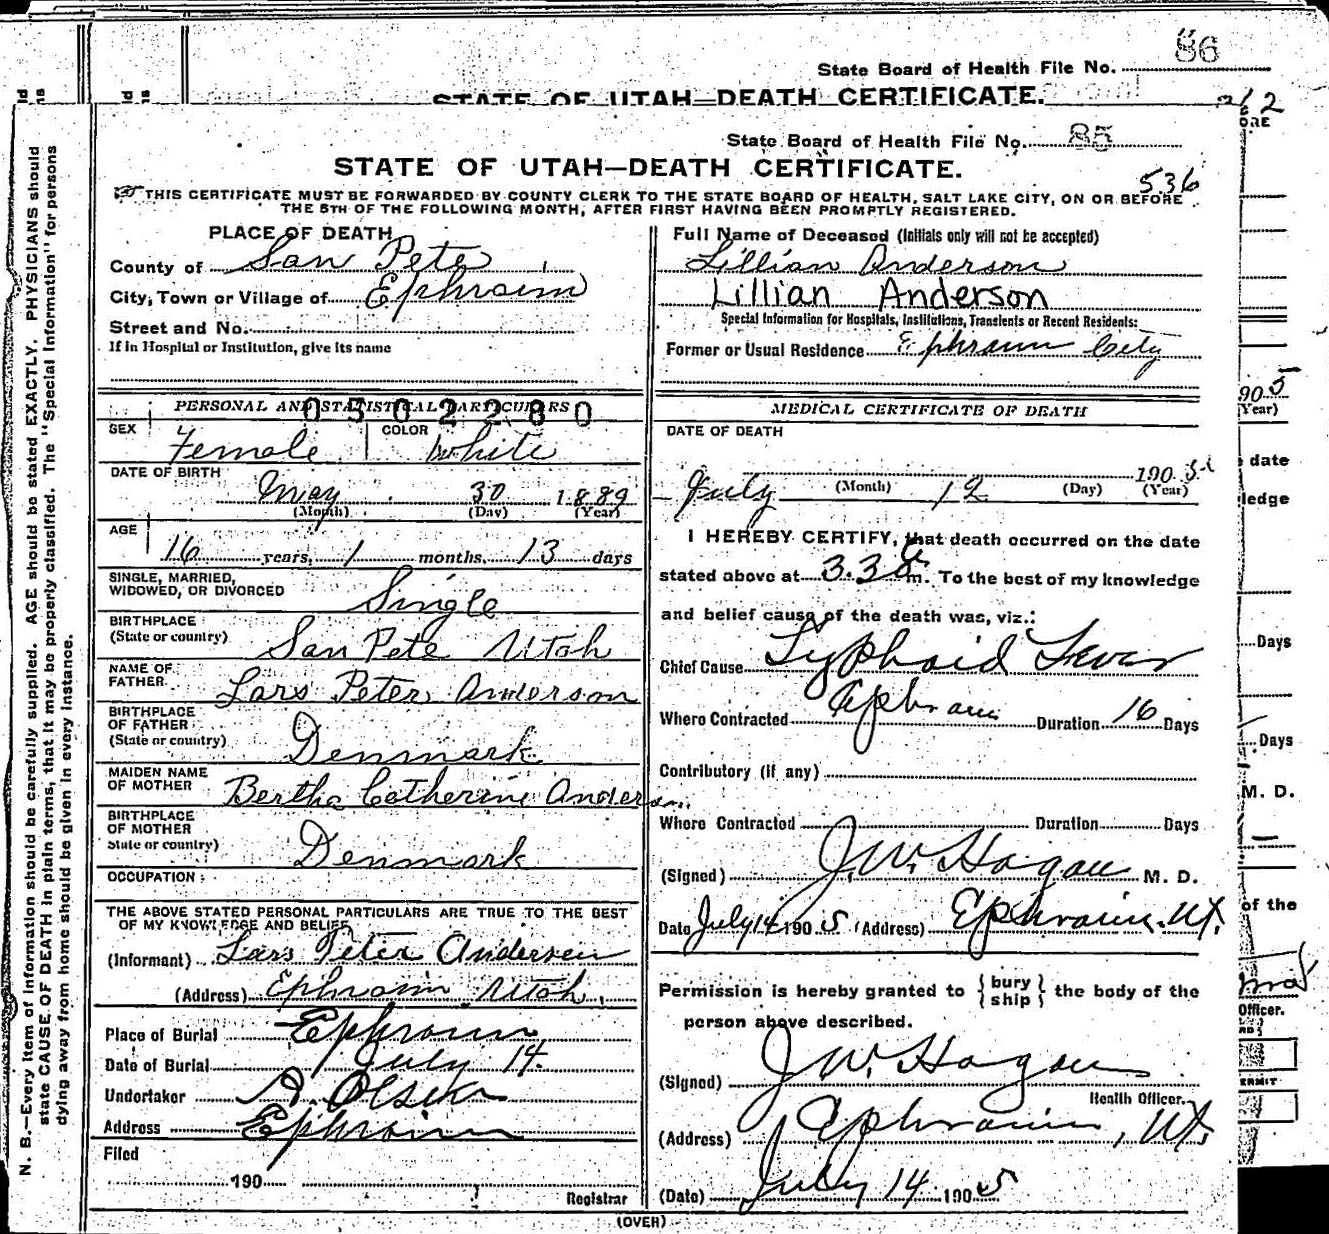 86
State Board of Health File No.
STATE OF UTAH—DEATH CERTIFICATE.
State Board of Health File No. 85
STATE OF UTAH—DEATH CERTIFICATE.
536
THIS CERTIFICATE MUST BE FORWARDED BY COUNTY CLERK TO THE STATE BOARD OF HEALTH, SALT LAKE CITY, ON OR BEFORE
THE 5TH OF THE FOLLOWING MONTH, AFTER FIRST HAVING BEEN PROMPTLY REGISTERED.
N. B.—Every item of information should be carefully supplied. AGE should be stated EXACTLY. PHYSICIANS should
state CAUSE OF DEATH in plain terms, that it may be properly classified. The "Special Information" for persons
dying away from home should be given in every instance.
PLACE OF DEATH
County of San Pete
City, Town or Village of Ephraim
Street and No.
If in Hospital or Institution, give its name
PERSONAL AND STATISTICAL PARTICULARS
0502280
SEX Female COLOR White
DATE OF BIRTH
May 30 1889
(Month) (Day) (Year)
AGE
16 years, 1 months, 13 days
SINGLE, MARRIED,
WIDOWED, OR DIVORCED Single
BIRTHPLACE
(State or country) San Pete Utah
NAME OF
FATHER Lars Peter Anderson
BIRTHPLACE
OF FATHER
(State or country) Denmark
MAIDEN NAME
OF MOTHER Bertha Catherine Anderson
BIRTHPLACE
OF MOTHER
State or country) Denmark
OCCUPATION
THE ABOVE STATED PERSONAL PARTICULARS ARE TRUE TO THE BEST
OF MY KNOWLEDGE AND BELIEF
(Informant) Lars Peter Andersen
(Address) Ephraim Utah.
Place of Burial Ephraim
Date of Burial July 14.
Undertaker Olsen
Address Ephraim
Filed
190
Registrar
Full Name of Deceased (Initials only will not be accepted)
Lillian Anderson
Lillian Anderson
Special Information for Hospitals, Institutions, Transients or Recent Residents:
Former or Usual Residence Ephraim City
MEDICAL CERTIFICATE OF DEATH
DATE OF DEATH
July 12 1905
(Month) (Day) (Year)
I HEREBY CERTIFY, that death occurred on the date
stated above at m. To the best of my knowledge
and belief cause of the death was, viz.:
Chief Cause Typhoid Fever
Where Contracted Ephraim Duration 16 Days
Contributory (if any)
Where Contracted Duration Days
(Signed) J. W. Hagan M. D.
Date July 14 1905 (Address) Ephraim. Ut.
Permission is hereby granted to {bury ship} the body of the
person above described.
(Signed) J W. Hagan
Health Officer.
(Address) Ephraim, Ut.
(Date) July 14 1905
(OVER)
905
(Year)
date
ledge
Days
Days
M. D.
of the
Officer.